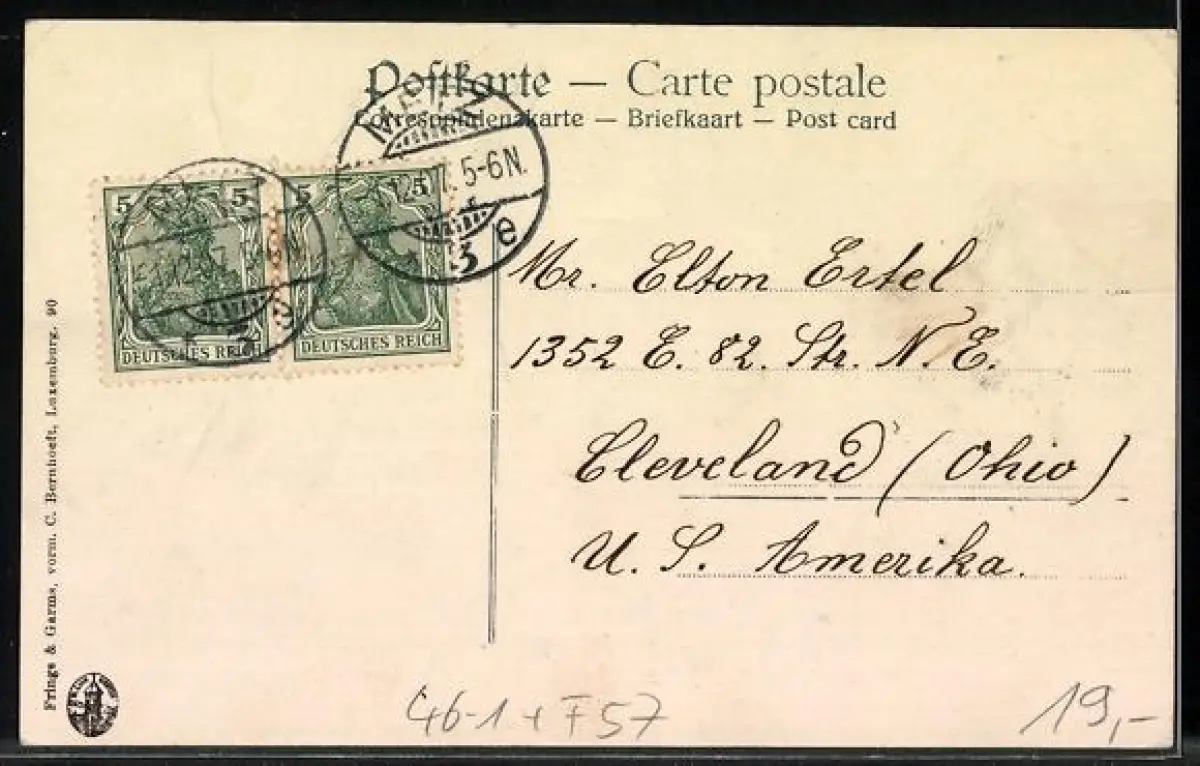 Postkarte — Carte postale
Correspondenzkarte — Briefkaart — Post card
5 5
5 5
DEUTSCHES REICH
DEUTSCHES REICH
5-6N.
3 e
Mr. Elton Ertel
1352 E. 82. Str. N. E.
Cleveland (Ohio)
U. S. Amerika.
Frings & Garms, vorm. C. Bernhoeft, Luxemburg. 90
46-1+F57
19,-